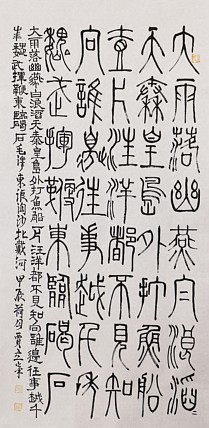 大雨落幽燕白浪滔
天秦皇島外打魚船
壹片汪洋都不見知
向誰邊往事越千年
魏武揮鞭東臨碣石
大雨落幽燕白浪滔天秦皇島外打魚船一片汪洋都不見知向誰邊往事越千
年魏武揮鞭東臨碣石毛澤東浪淘沙北戴河甲辰